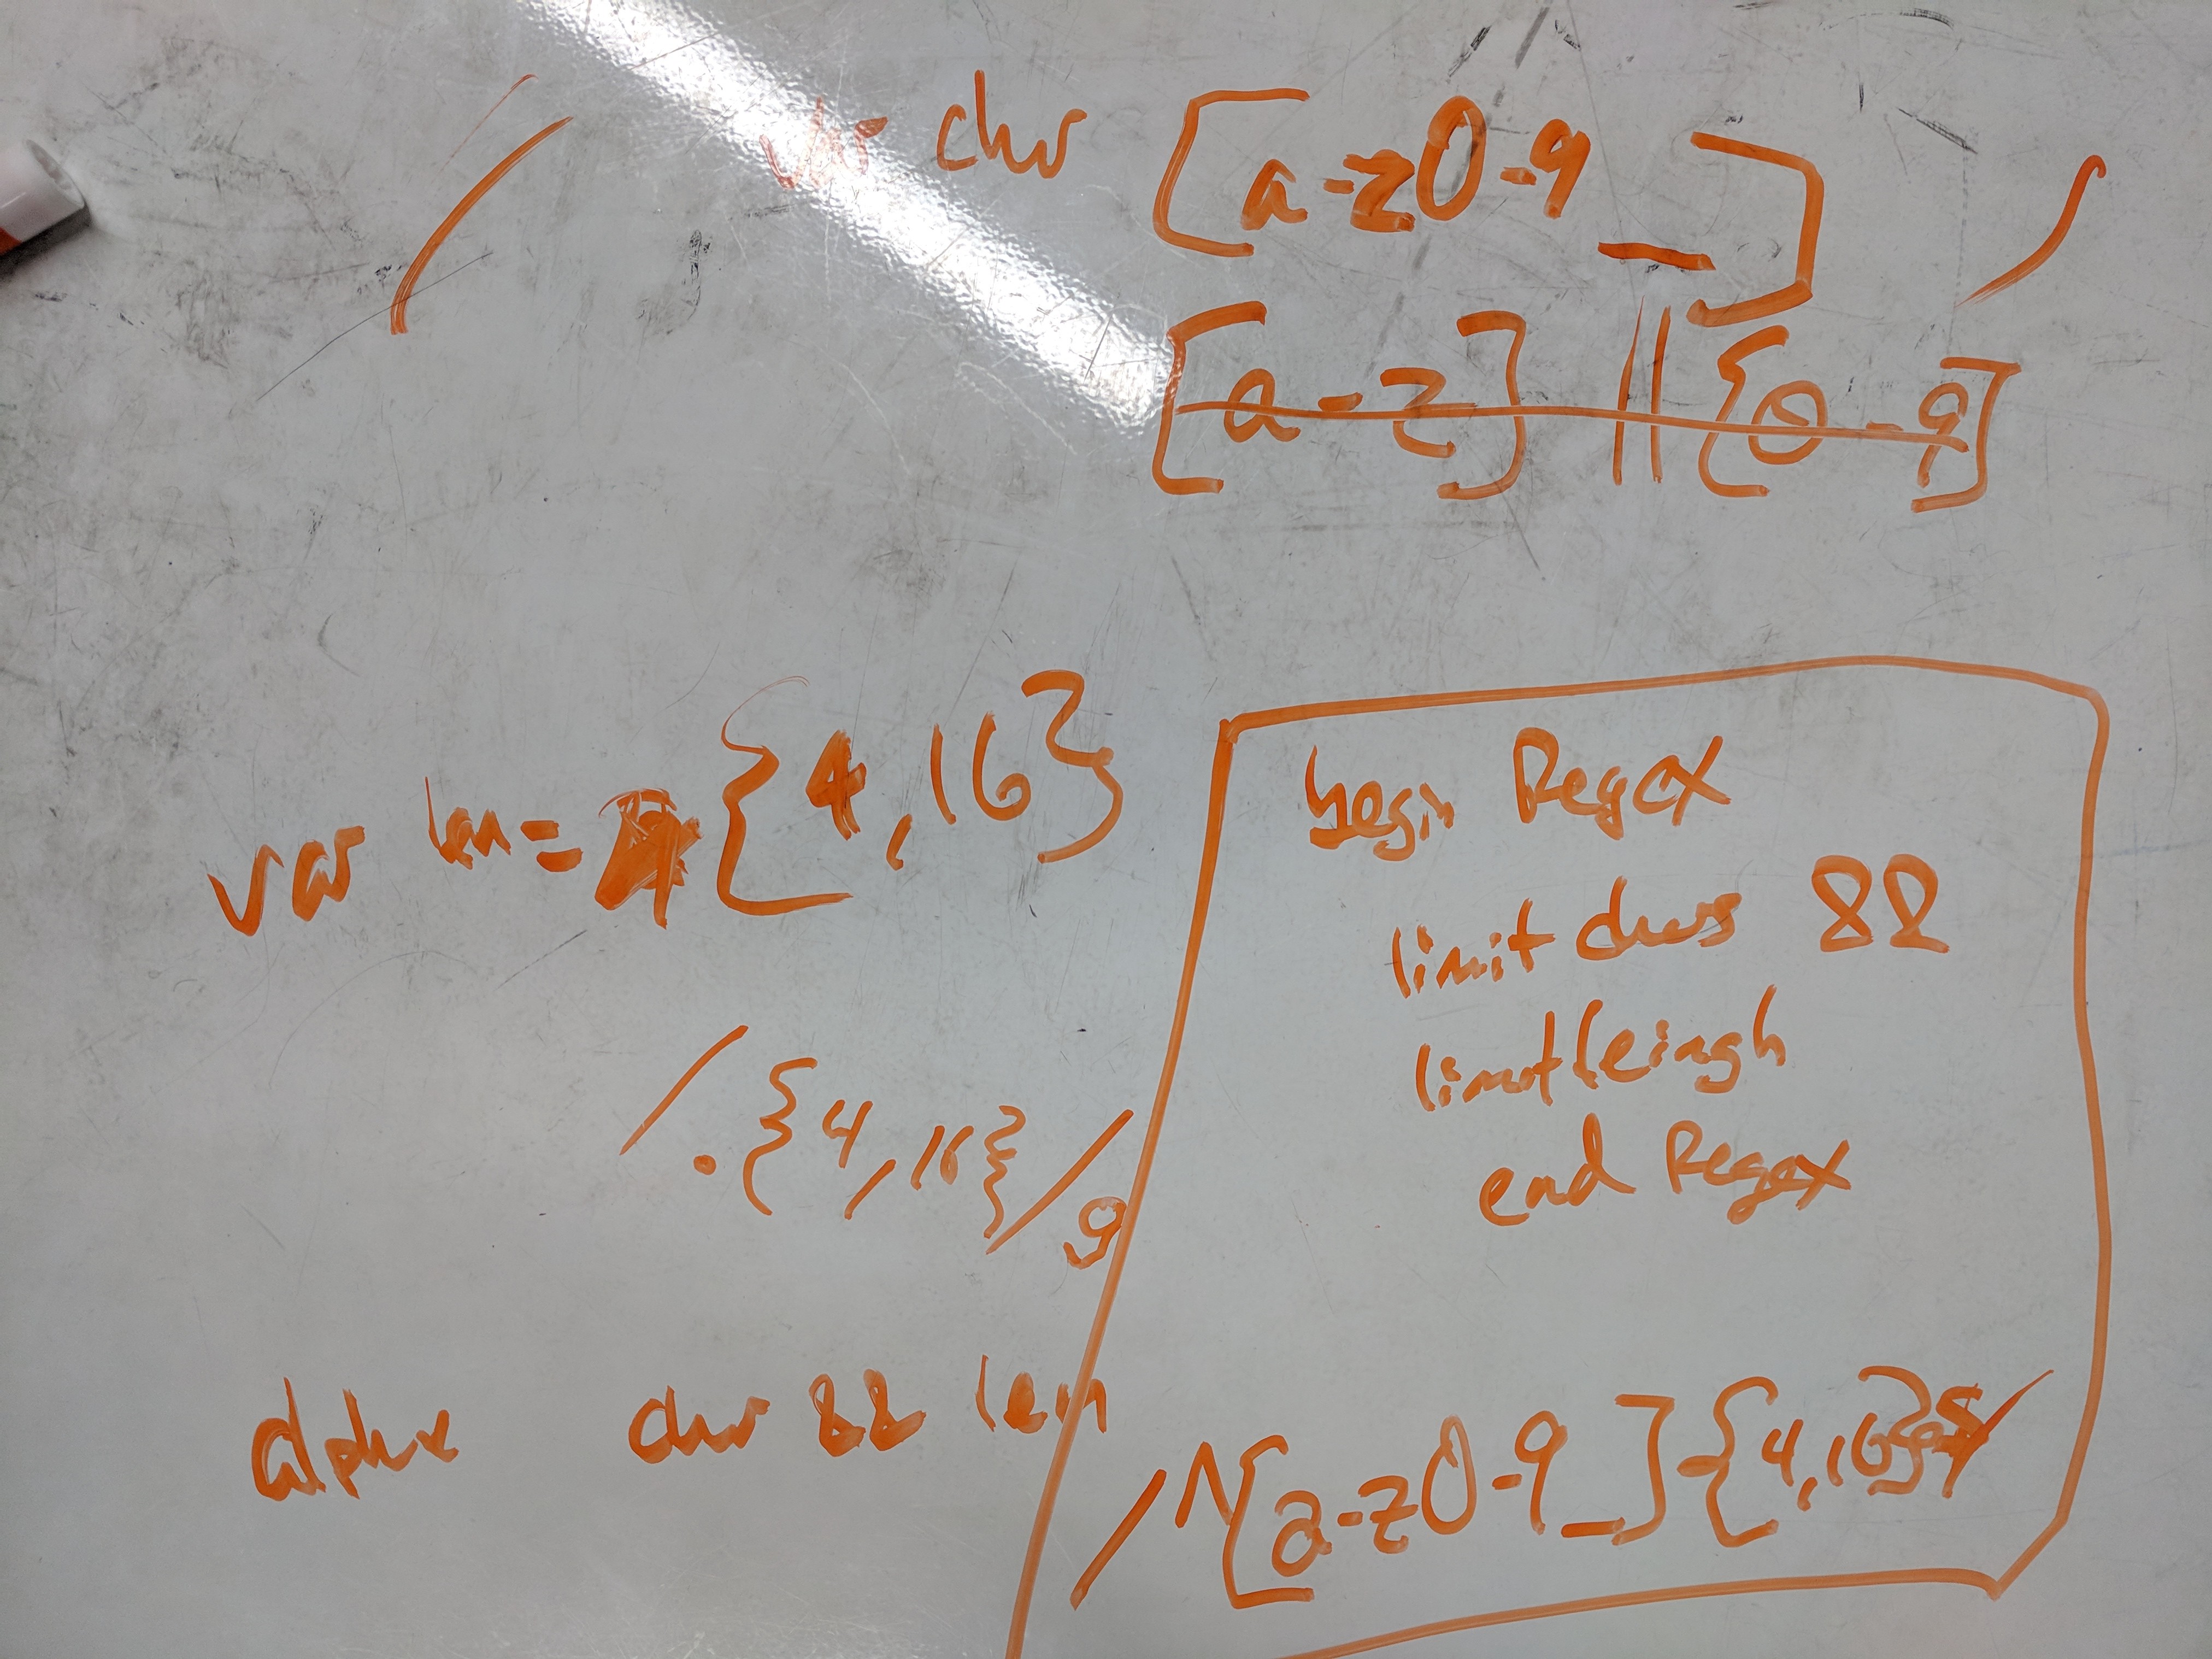 / var chr [a-z0-9_] /
[a-z] || [0-9]
var len = {4,16}
/.{4,16}/g
alpha chr && len
begin Regex
limit chars &&
limit leingh
end Regex
/^[a-z0-9_]{4,16}$/